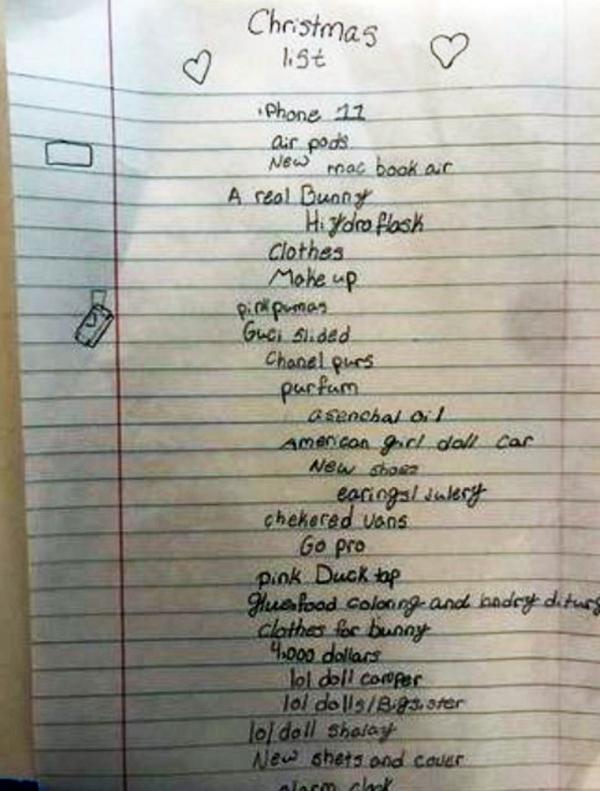 Christmas
list
iPhone 11
air pods
New mac book air
A real Bunny
Hi ydro flask
Clothes
Make up
pink pumas
Guci slided
Chanel purs
purfum
asenchal oil
American girl doll car
New shoes
earings/julery
chekered vans
Go pro
pink Duck tap
glue food coloring and
clothes for bunny
4,000 dollars
lol doll camper
lol dolls/Bigsister
lol doll shalay
New shets and cover
alarm clock